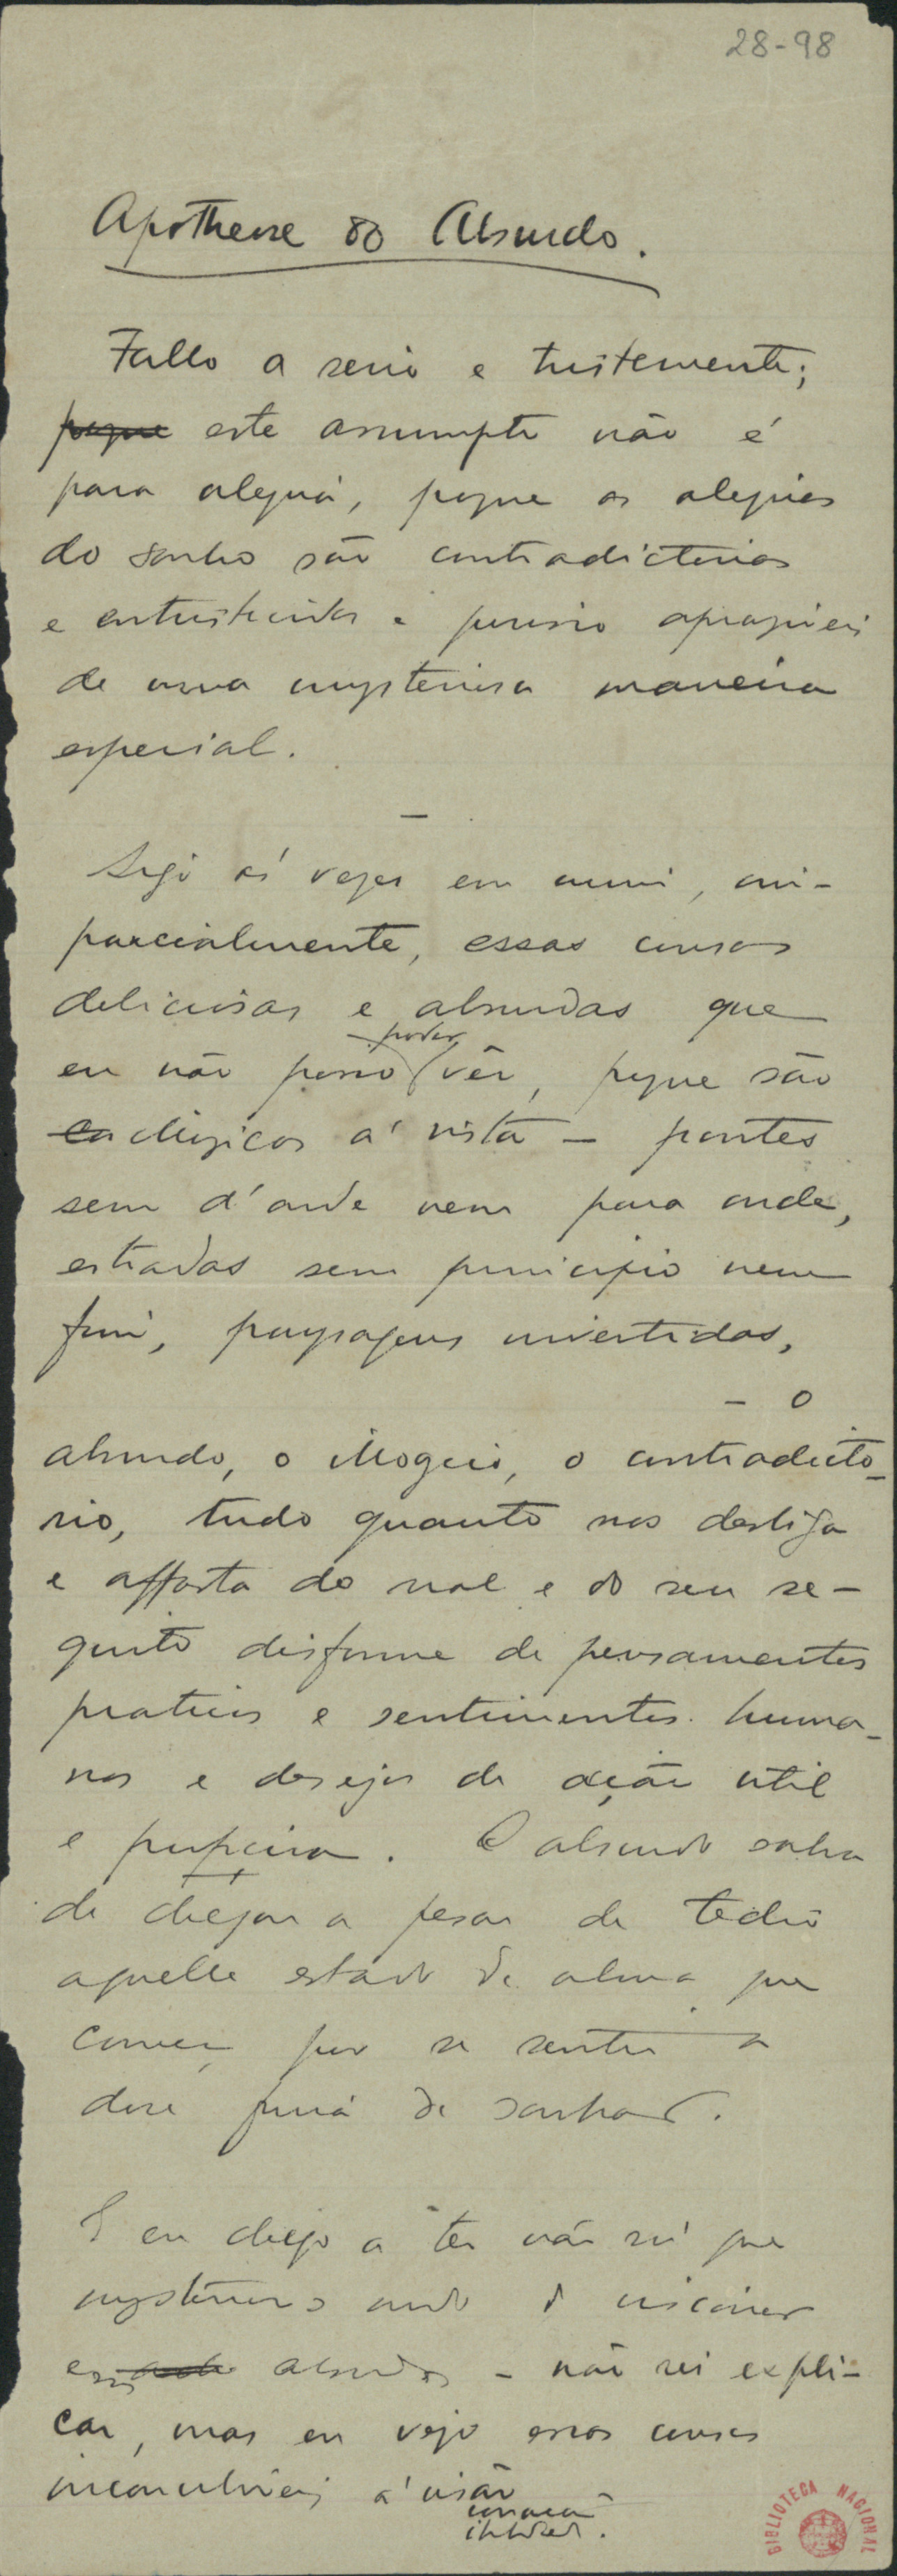 28-98
Apotheose do Absurdo.
Fallo a serio e tristemente;
este assumpto não é
para alegria, porque as alegrias
do sonho são contradictorias
e entristecidas e por isso apraziveis
de uma mysteriosa maneira
especial.
—
Sigo ás vezes em mim, im-
parcialmente, essas cousas
deliciosas e absurdas que
poder
eu não posso ver, porque são
illogicas á vista — pontes
sem d'onde nem para onde,
estradas sem principio nem
fim, paysagens invertidas,
— o
absurdo, o illogico, o contradicto-
rio, tudo quanto nos desliga
e affasta do real e do seu se-
quito disforme de pensamentos
praticos e sentimentos huma-
nos e desejos de acção util
e proficua. O absurdo salva
de chegar a pesar de tedio
aquelle estado de alma que
começa por se sentir a
doce furia de sonhar.
E eu chego a ter não sei que
mysterioso modo de visionar
esses absurdos — não sei expli-
car, mas eu vejo essas cousas
inconcebiveis á visão
BIBLIOTECA NACIONAL